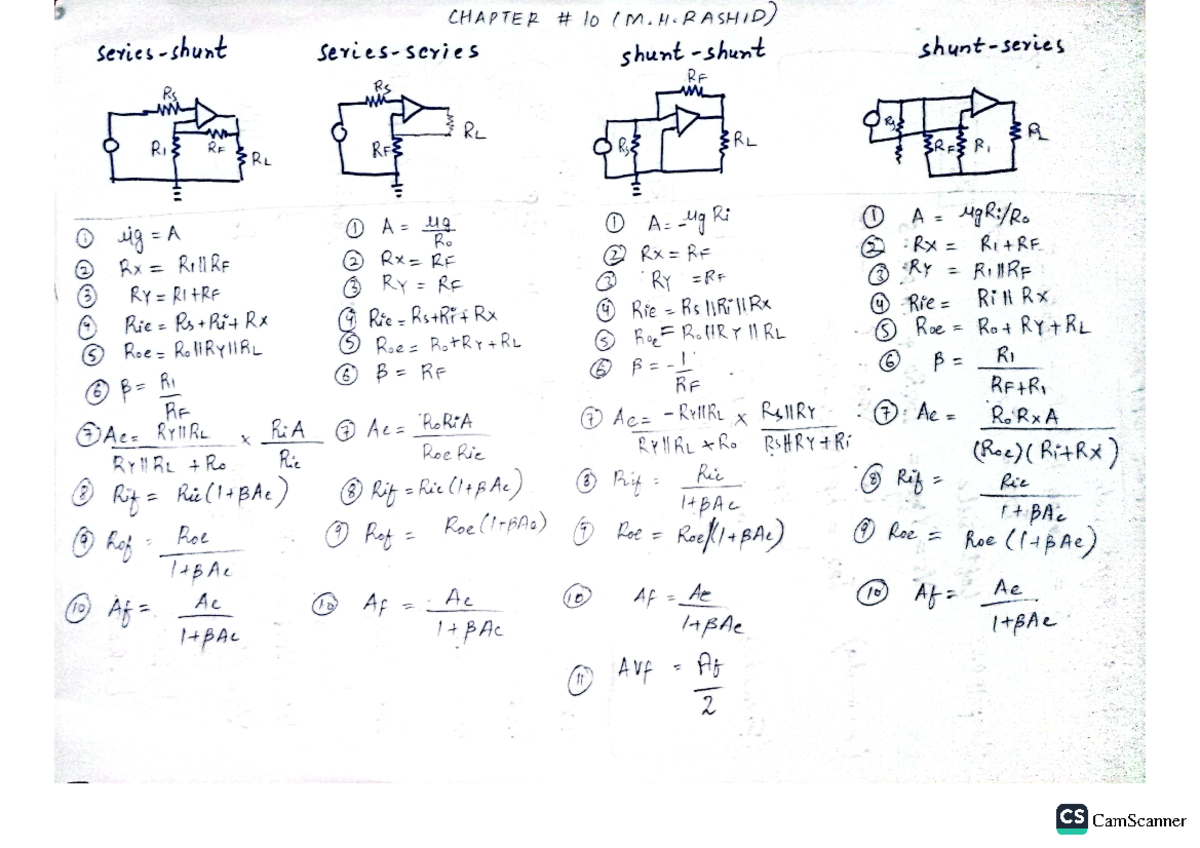 CHAPTER # 10 (M.H.RASHID)
series-shunt
RS
R1
RF
RL
① μg = A
② RX = R1||RF
③ RY = R1+RF
④ Rie = Rs+Ri+RX
⑤ Roe = Ro||RY||RL
⑥ β = R1
RF
⑦ Ae = RY||RL × RiA
RY||RL + Ro Rie
⑧ Rif = Rie(1+βAe)
⑨ Rof = Roe
1+βAe
⑩ Af = Ae
1+βAe
series-series
RS
RF
RL
① A = μg
Ro
② RX = RF
③ RY = RF
④ Rie = Rs+Ri+RX
⑤ Roe = Ro+RY+RL
⑥ β = RF
⑦ Ae = RoRiA
Roe Rie
⑧ Rif = Rie(1+βAe)
⑨ Rof = Roe(1+βAe)
⑩ Af = Ae
1+βAe
shunt-shunt
RF
RS
RL
① A = -μg Ri
② RX = RF
③ RY = RF
④ Rie = Rs||Ri||RX
⑤ Roe = Ro||RY||RL
⑥ β = -1
RF
⑦ Ae = -RY||RL × Rs||RY
RY||RL × Ro Rs||RY+Ri
⑧ Rif = Rie
1+βAe
⑨ Roe = Roe/(1+βAe)
⑩ Af = Ae
1+βAe
⑪ Avf = Af
2
shunt-series
RS
RF
R1
RL
① A = μgRi/Ro
② RX = R1+RF
③ RY = R1||RF
④ Rie = Ri||RX
⑤ Roe = Ro+RY+RL
⑥ β = R1
RF+R1
⑦ Ae = RoRXA
(Roe)(Ri+RX)
⑧ Rif = Rie
1+βAe
⑨ Roe = Roe(1+βAe)
⑩ Af = Ae
1+βAe
CS CamScanner